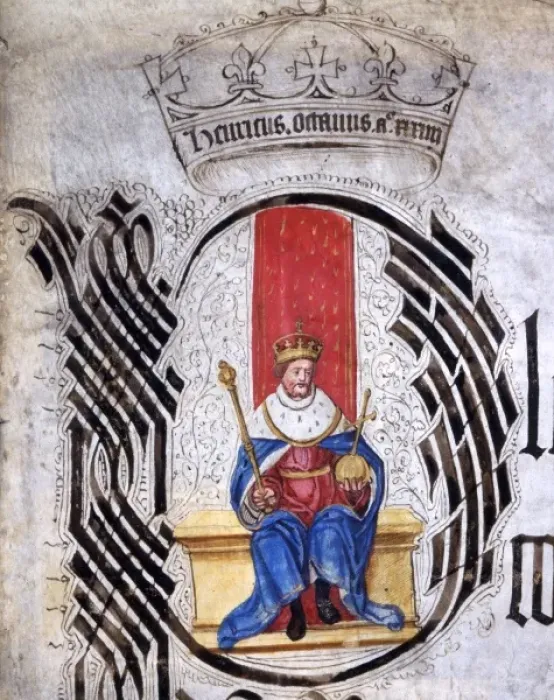 Henricus. octauus. a°
P